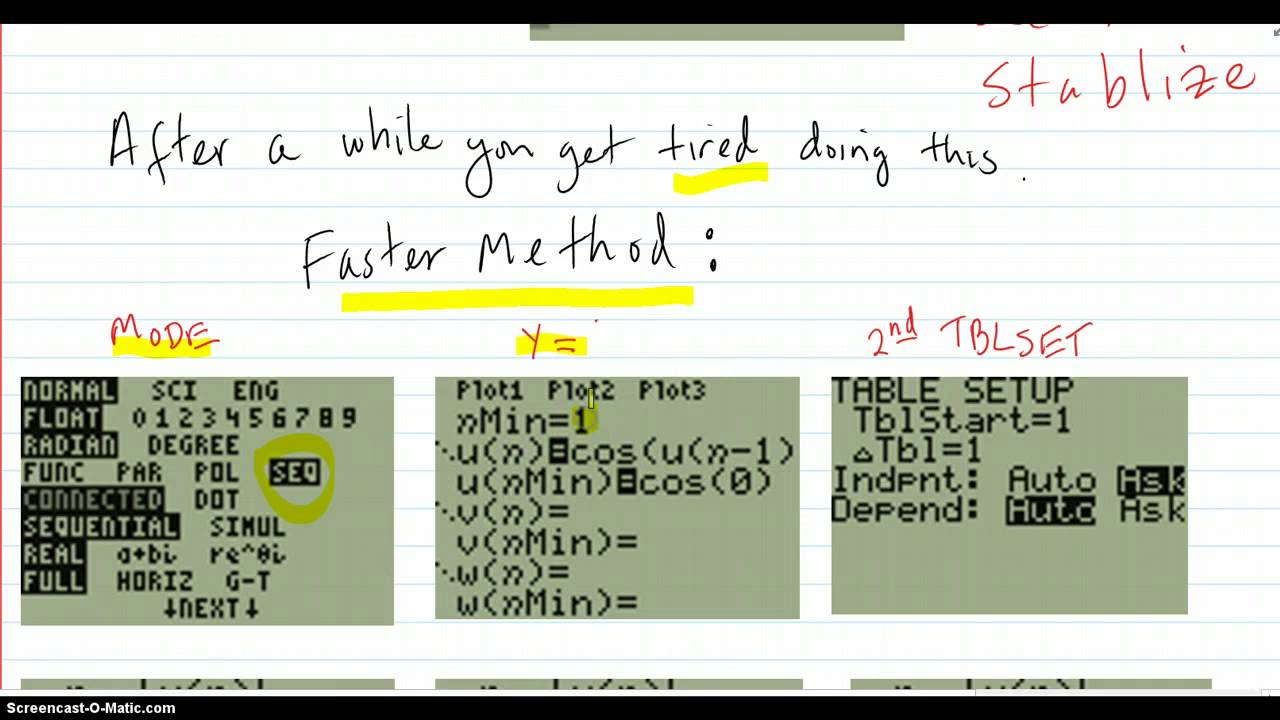 Stablize
After a while you get tired doing this.
Faster Method:
MODE
Y=
2nd TBLSET
NORMAL SCI ENG
FLOAT 0123456789
RADIAN DEGREE
FUNC PAR POL SEQ
CONNECTED DOT
SEQUENTIAL SIMUL
REAL a+bi re^θi
FULL HORIZ G-T
↓NEXT↓
Plot1 Plot2 Plot3
nMin=1
u(n)=cos(u(n-1)
u(nMin)=cos(0)
v(n)=
v(nMin)=
w(n)=
w(nMin)=
TABLE SETUP
TblStart=1
△Tbl=1
Indpnt: Auto Ask
Depend: Auto Ask
Screencast-O-Matic.com